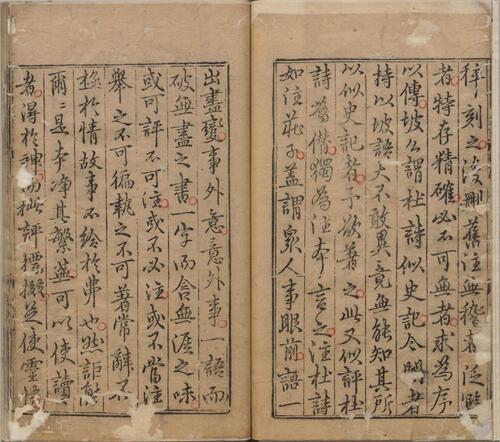 梓刻之後刪舊注無稽者泛濫
者特存精確必不可無者求為序
以傳坡公謂杜詩似史記今聞者
持以坡語大不敢異竟無能知其所
以似史記者予欲著之此又似評杜
詩為僭獨為注本言之注杜詩
如注莊子蓋謂眾人事眼前語一
出盡變事外意意外事一語而
破無盡之書一字而含無涯之味
或可評不可注或不必注或不當注
舉之不可徧執之不可著常辭不
極於情故事不給於弗也然詎能
爾爾是本淨其繁蕪可以使讀
者得於神而批評摽掇足使靈悟